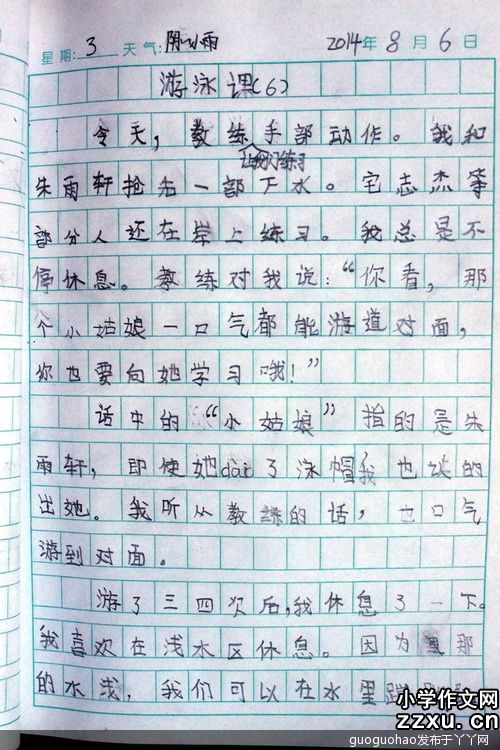 星期: 3 天气: 阴小雨 2014年8月6日
游泳课(6)
今天，教练手部动作。我和
让我们练习
朱雨轩抢先一部下水。宅志杰等
部分人还在岸上练习。我总是不
停休息。教练对我说：“你看，那
个小姑娘一口气都能游道对面，
你也要向她学习哦！”
话中的“小姑娘”指的是朱
雨轩，即使她dai了泳帽我也认的
出她。我听从教练的话，一口气
游到对面。
游了三四次后，我休息了一下。
我喜欢在浅水区休息。因为那
的水浅，我们可以在水里蹦
小学作文网
zzxu.cn
guoguohao发布于丫丫网